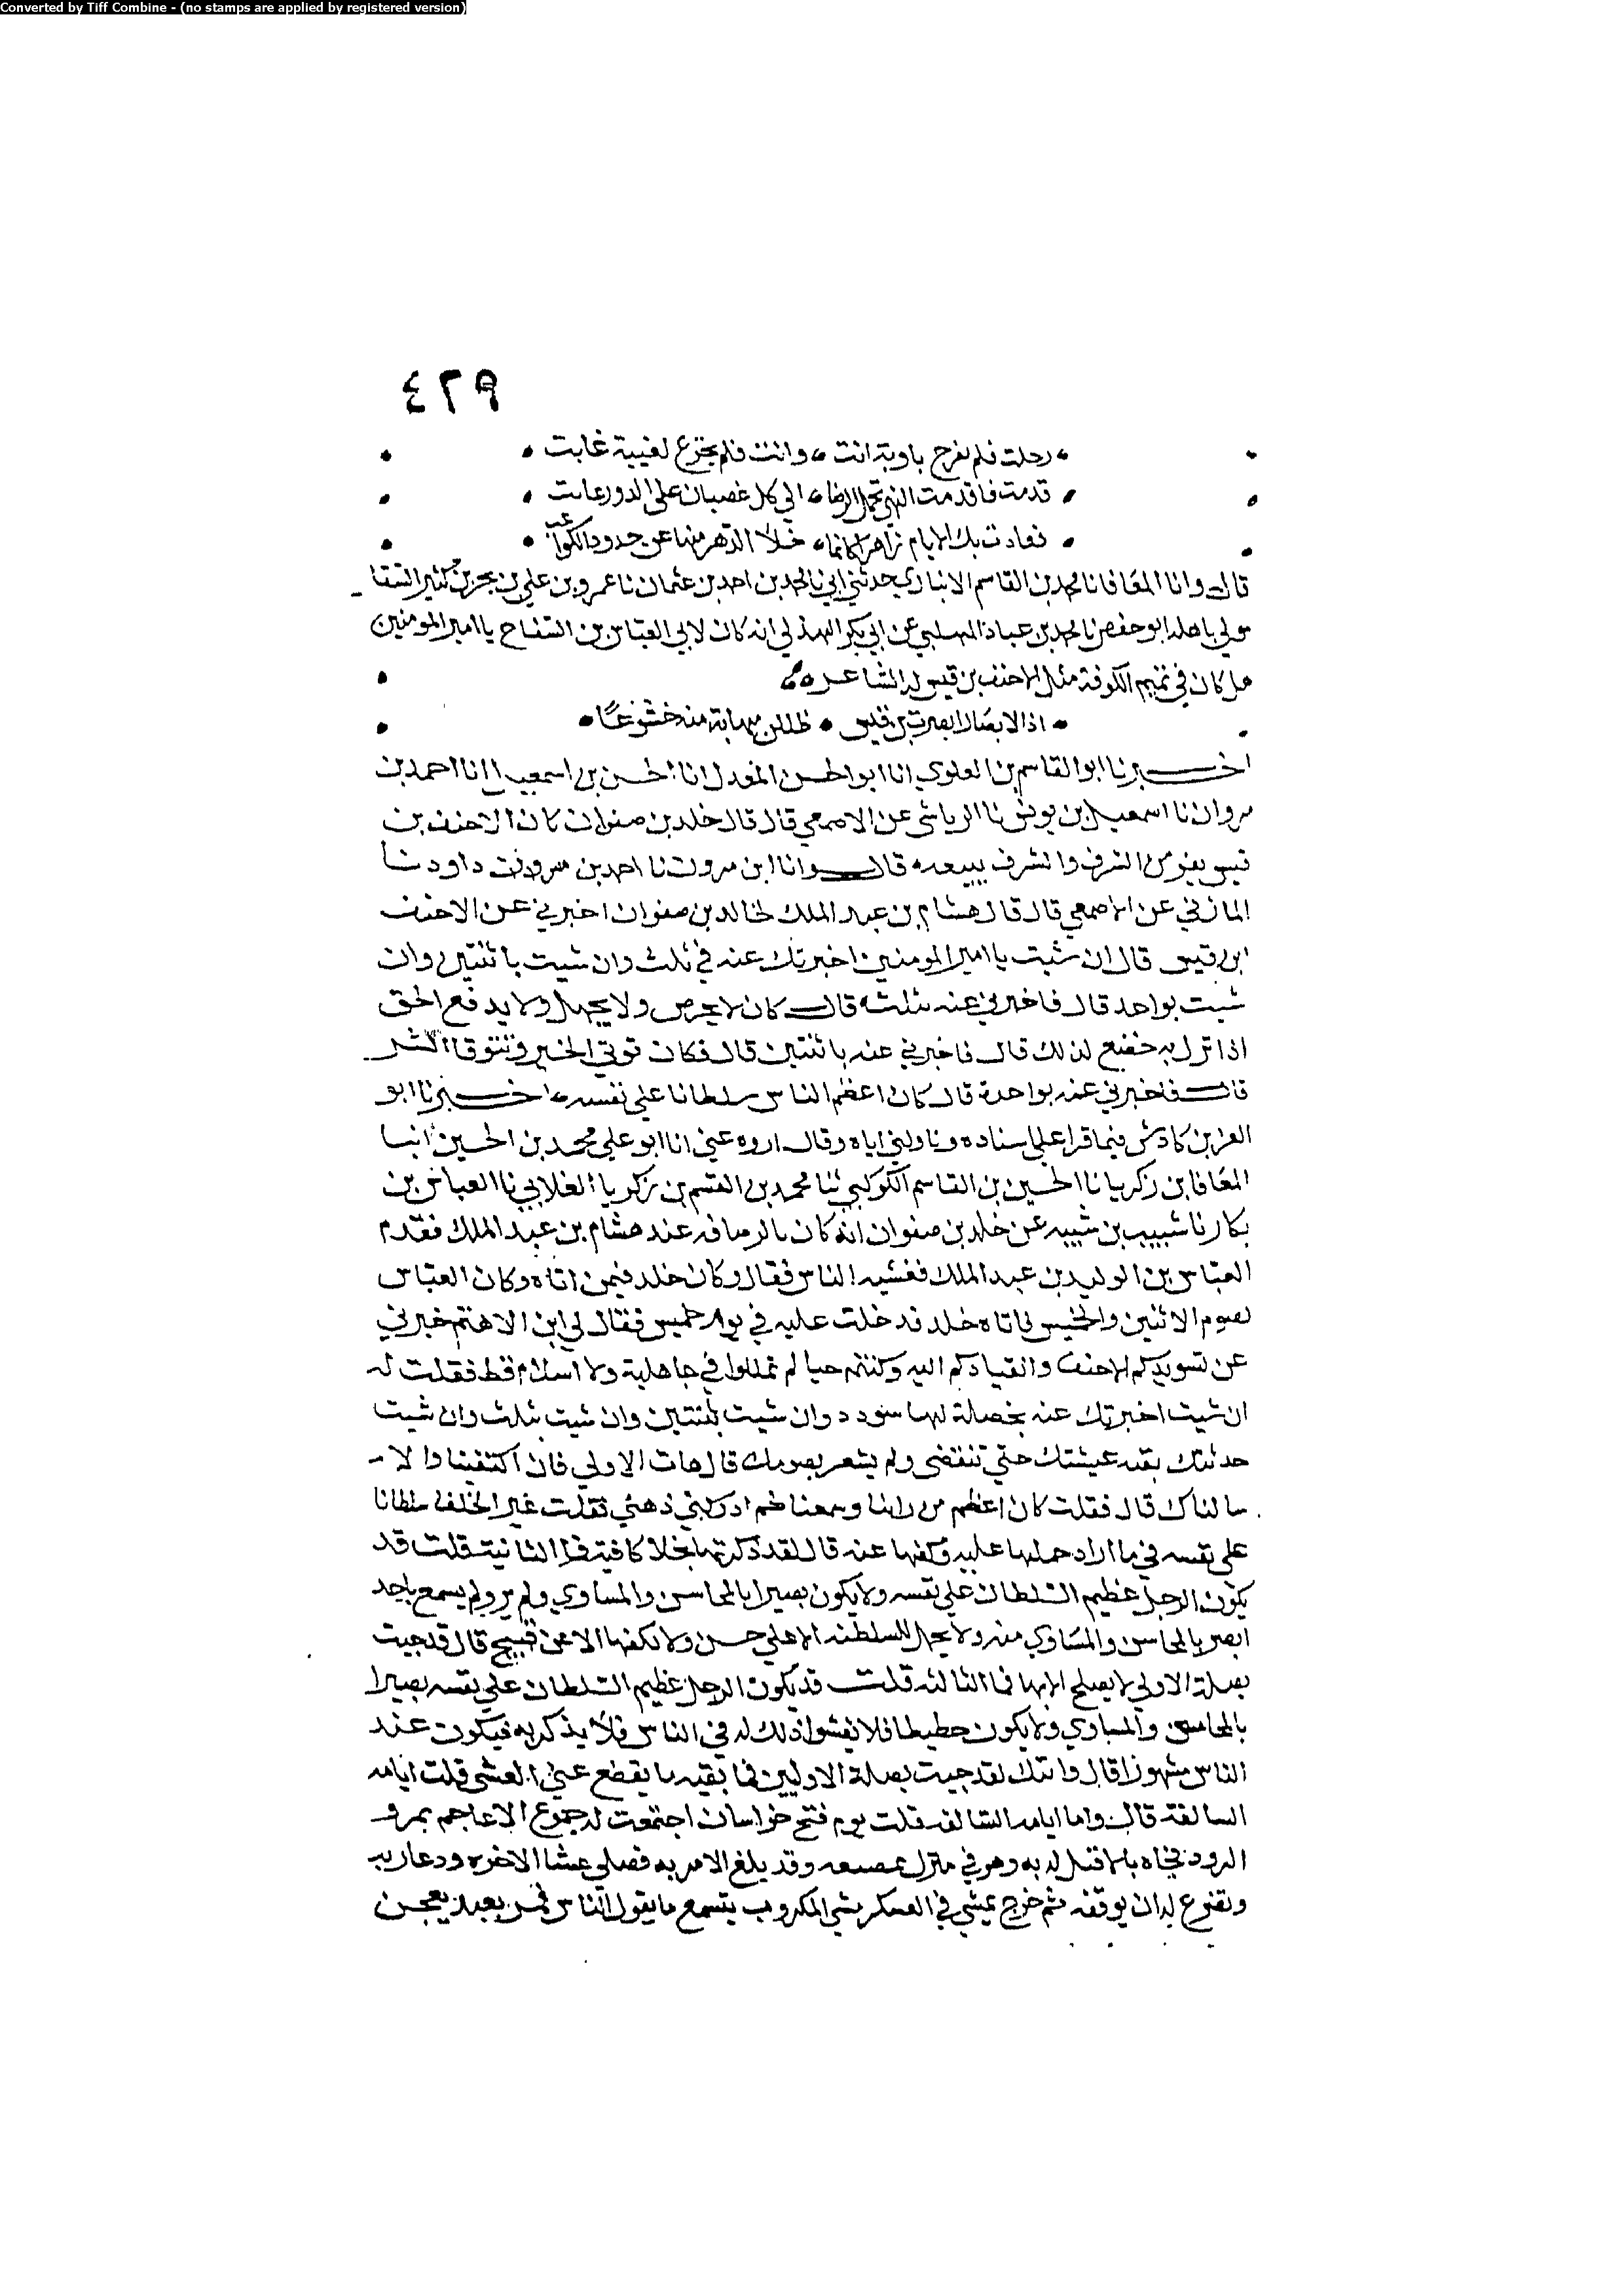 Converted by Tiff Combine - (no stamps are applied by registered version)
٤٢٩
رحلت فلم نفرح باوبة انت وانت فلم نجزع لغيبة غايت
قدمت فاقدمت النهي تحمل الرضا الي كل غضبان على الدهر عاتب
فعادت بك الايام زاهرا كانما جلا الدهر منها عن خدود الكواعب
قال وانا المعافا نا محمد بن القاسم الانباري حدثني ابي نا احمد بن عثمان نا عمرو بن علي بن بحر بن كثير السقا
مولي باهله ابو حفص نا محمد بن عباد المهلبي عن ابي بكر الهذلي انه كان لابي العباس بن السفاح يا امير المومنين
هل كان في تميم الكوفة مثل الاحنف بن قيس له الشاعر
اذا الابصار ابصرت بن قيس ظللن مهابة منه خشوعا
اخبرنا ابو القاسم بن العلوي انا ابو الحسن المعدل انا الحسن بن اسمعيل انا احمد بن
مروان نا اسمعيل بن يونس نا الرياشي عن الاصمعي قال قال خلد بن صفوان كان الاحنف بن
قيس يفر من الشرف والشرف يتبعه قال وانا ابن مروان نا احمد بن داود نا
المازني عن الاصمعي قال قال هشام بن عبد الملك لخالد بن صفوان اخبرني عن الاحنف
ابن قيس قال ان شيت يا امير المومنين اخبرتك عنه في ثلث وان شيت باثنتين وان
شيت بواحد قال فاخبرني عنه بثلثه قال كان لا يحرص ولا يجهل ولا يدفع الحق
اذا نزل به خضع لذلك قال فاخبرني عنه باثنتين قال فكان توتي الخير وتتوقا الشر
قال فاخبرني عنه بواحدة قال كان اعظم الناس سلطانا على نفسه اخبرنا ابو
العز بن كادش فيما قرا علي اسناده وناولني اياه وقال اروه عني انا ابو علي محمد بن الحسين انبا
المعافا بن زكريا نا الحسين بن القاسم الكوكبي نا محمد بن القسم بن زكريا الغلابي نا العباس بن
بكار نا شبيب بن شيبه عن خلد بن صفوان انه كان بالرصافه عند هشام بن عبد الملك فقدم
العباس بن الوليد بن عبد الملك فغشيه الناس فقال وكان خلد فيمن اتاه وكان العباس
يصوم الاثنين والخميس فاتاه خلد فدخلت عليه في يوم خميس فقال لي ابن الاهتم خبرني
عن تسويدكم الاحنف وانقيادكم اليه وكنتم حيا لم تملكوا في جاهلية ولا اسلام قط فقلت له
ان شيت اخبرتك عنه بخصلة لها سودد وان شيت بثنتين وان شيت بثلث وان شيت
حدثتك بقيه عيشتك حتي تنقضي ولم يشعر بصومك قال هات الاولي فان اكتفينا والا
سالناك قال فقلت كان اعظم من راينا وسمعنا ثم ادركني ذهني فقلت غير الخلفا سلطانا
على نفسه في ما اراد حملها عليه وكفها عنه قال لقد ذكرتها بخلا كافية فما الثانية قلت قد
يكون الرجل عظيم السلطان على نفسه ولا يكون بصيرا بالمحاسن والمساوي ولم ير ولم يسمع باحد
ابصر بالمحاسن والمساوي منه ولا يحمل السلطنه الا على حسن ولا تكفها الا عن قبيح قال قد جيت
بصلة الاولي لا يصلح الا بها فما الثالثه قلت قد يكون الرجل عظيم السلطان على نفسه بصيرا
بالمحاسن والمساوي ولا يكون حظيظا فلا يفشوا ذلك له في الناس فلا يذكر به فيكون عند
الناس مشهورا قال واتتك لقد جيت بصلة الاوليين فما بقيه ما يقطع عني العشي قلت ايامه
السالفة قال واما ايامه السالفه قلت يوم فتح خراسان اجتمعت له جموع الاعاجم بمرو
الرود فجاه ما لا قبل له به وهو في منزل بمصيعه وقد بلغ الامر به فصلى عشا الاخره ودعا ربه
وتضرع له ان يوفقه ثم خرج يمشي في العسكر مشي المكروب يتسمع ما يقول الناس فمر بعبد يعجن